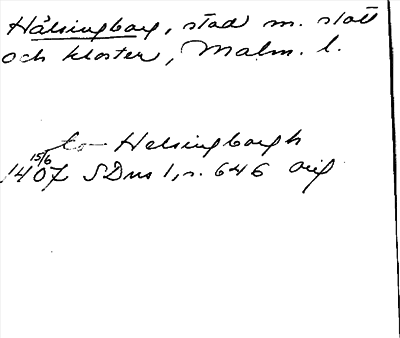 Hälsingborg, stad m. slott
och kloster, Malm. l.
to Helsingborgh
15/6
1407 SDns 1, s. 646 orig